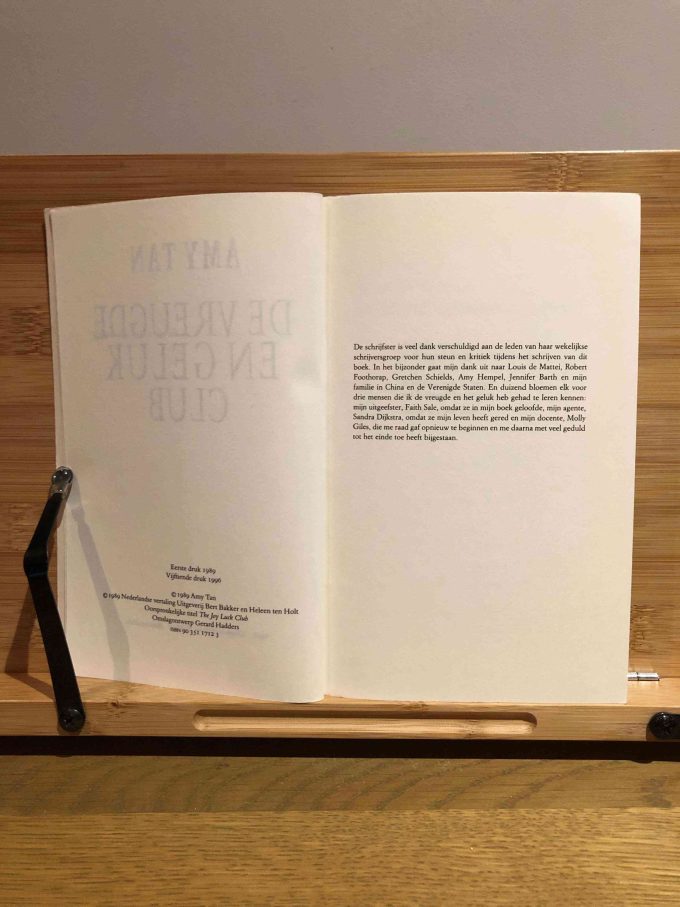 AMY TAN
DE VREUGDE
EN GELUK
CLUB
Eerste druk 1989
Vijftiende druk 1996
© 1989 Amy Tan
© 1989 Nederlandse vertaling Uitgeverij Bert Bakker en Heleen ten Holt
Oorspronkelijke titel The Joy Luck Club
Omslagontwerp Gerard Hadders
ISBN 90 351 1712 3
De schrijfster is veel dank verschuldigd aan de leden van haar wekelijkse
schrijversgroep voor hun steun en kritiek tijdens het schrijven van dit
boek. In het bijzonder gaat mijn dank uit naar Louis de Mattei, Robert
Foothorap, Gretchen Schields, Amy Hempel, Jennifer Barth en mijn
familie in China en de Verenigde Staten. En duizend bloemen elk voor
drie mensen die ik de vreugde en het geluk heb gehad te leren kennen:
mijn uitgeefster, Faith Sale, omdat ze in mijn boek geloofde, mijn agente,
Sandra Dijkstra, omdat ze mijn leven heeft gered en mijn docente, Molly
Giles, die me raad gaf opnieuw te beginnen en me daarna met veel geduld
tot het einde toe heeft bijgestaan.